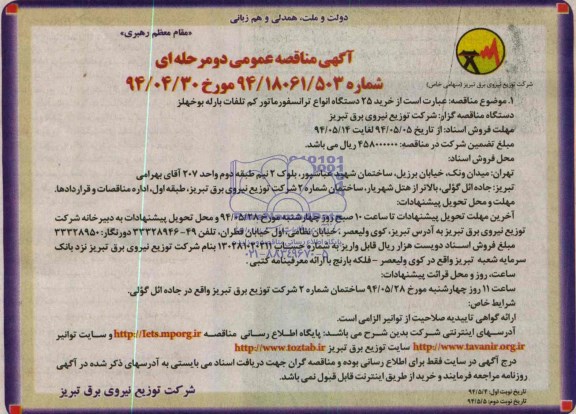 دولت و ملت، همدلی و هم زبانی
«مقام معظم رهبری»
آگهی مناقصه عمومی دومرحله ای
شماره ۹۴/۱۸۰۶۱/۵۰۳ مورخ ۹۴/۰۴/۳۰
شرکت توزیع نیروی برق تبریز (سهامی خاص)
۱. موضوع مناقصه: عبارت است از خرید ۲۵ دستگاه انواع ترانسفورماتور کم تلفات بارله بوخهلز
دستگاه مناقصه گزار: شرکت توزیع نیروی برق تبریز
مهلت فروش اسناد: از تاریخ ۹۴/۰۵/۰۵ لغایت ۹۴/۰۵/۱۴
مبلغ تضمین شرکت در مناقصه: ۴۵۸۰۰۰۰۰۰ ریال می باشد.
محل فروش اسناد:
تهران: میدان ونک، خیابان برزیل، ساختمان شهید عباسپور، بلوک ۲ نیم طبقه دوم واحد ۲۰۷ آقای بهرامی
تبریز: جاده ائل گؤلی، بالاتر از هتل شهریار، ساختمان شماره ۲ شرکت توزیع نیروی برق تبریز، طبقه اول، اداره مناقصات و قراردادها.
مهلت و محل تحویل پیشنهادات:
آخرین مهلت تحویل پیشنهادات تا ساعت ۱۰ صبح روز چهارشنبه مورخ ۹۴/۰۵/۲۸ و محل تحویل پیشنهادات به دبیرخانه شرکت
توزیع نیروی برق تبریز به آدرس تبریز، کوی ولیعصر، خیابان نظامی، اول خیابان قطران، تلفن ۴۹-۳۳۳۲۸۹۴۶ دورنگار: ۳۳۳۲۸۹۵۰
مبلغ فروش اسناد دویست هزار ریال قابل واریز به شماره حساب بنام شرکت توزیع نیروی برق تبریز نزد بانک
سرمایه شعبه تبریز واقع در کوی ولیعصر - فلکه بارنج با ارائه معرفینامه کتبی.
ساعت، روز و محل قرائت پیشنهادات:
ساعت ۱۱ روز چهارشنبه مورخ ۹۴/۰۵/۲۸ ساختمان شماره ۲ شرکت توزیع برق تبریز واقع در جاده ائل گؤلی.
شرایط خاص:
ارائه گواهی تاییدیه صلاحیت از توانیر الزامی است.
آدرسهای اینترنتی شرکت بدین شرح می باشد: پایگاه اطلاع رسانی مناقصه http://iets.mporg.ir و سایت توانیر
http://www.tavanir.org.ir سایت توزیع برق تبریز http://www.toztab.ir
درج آگهی در سایت فقط برای اطلاع رسانی بوده و مناقصه گران جهت دریافت اسناد می بایستی به آدرسهای ذکر شده در آگهی
روزنامه مراجعه فرمایند و خرید از طریق اینترنت قابل قبول نمی باشد.
شرکت توزیع نیروی برق تبریز
تاریخ نوبت اول: ۹۴/۵/۴
تاریخ نوبت دوم: ۹۴/۵/۵